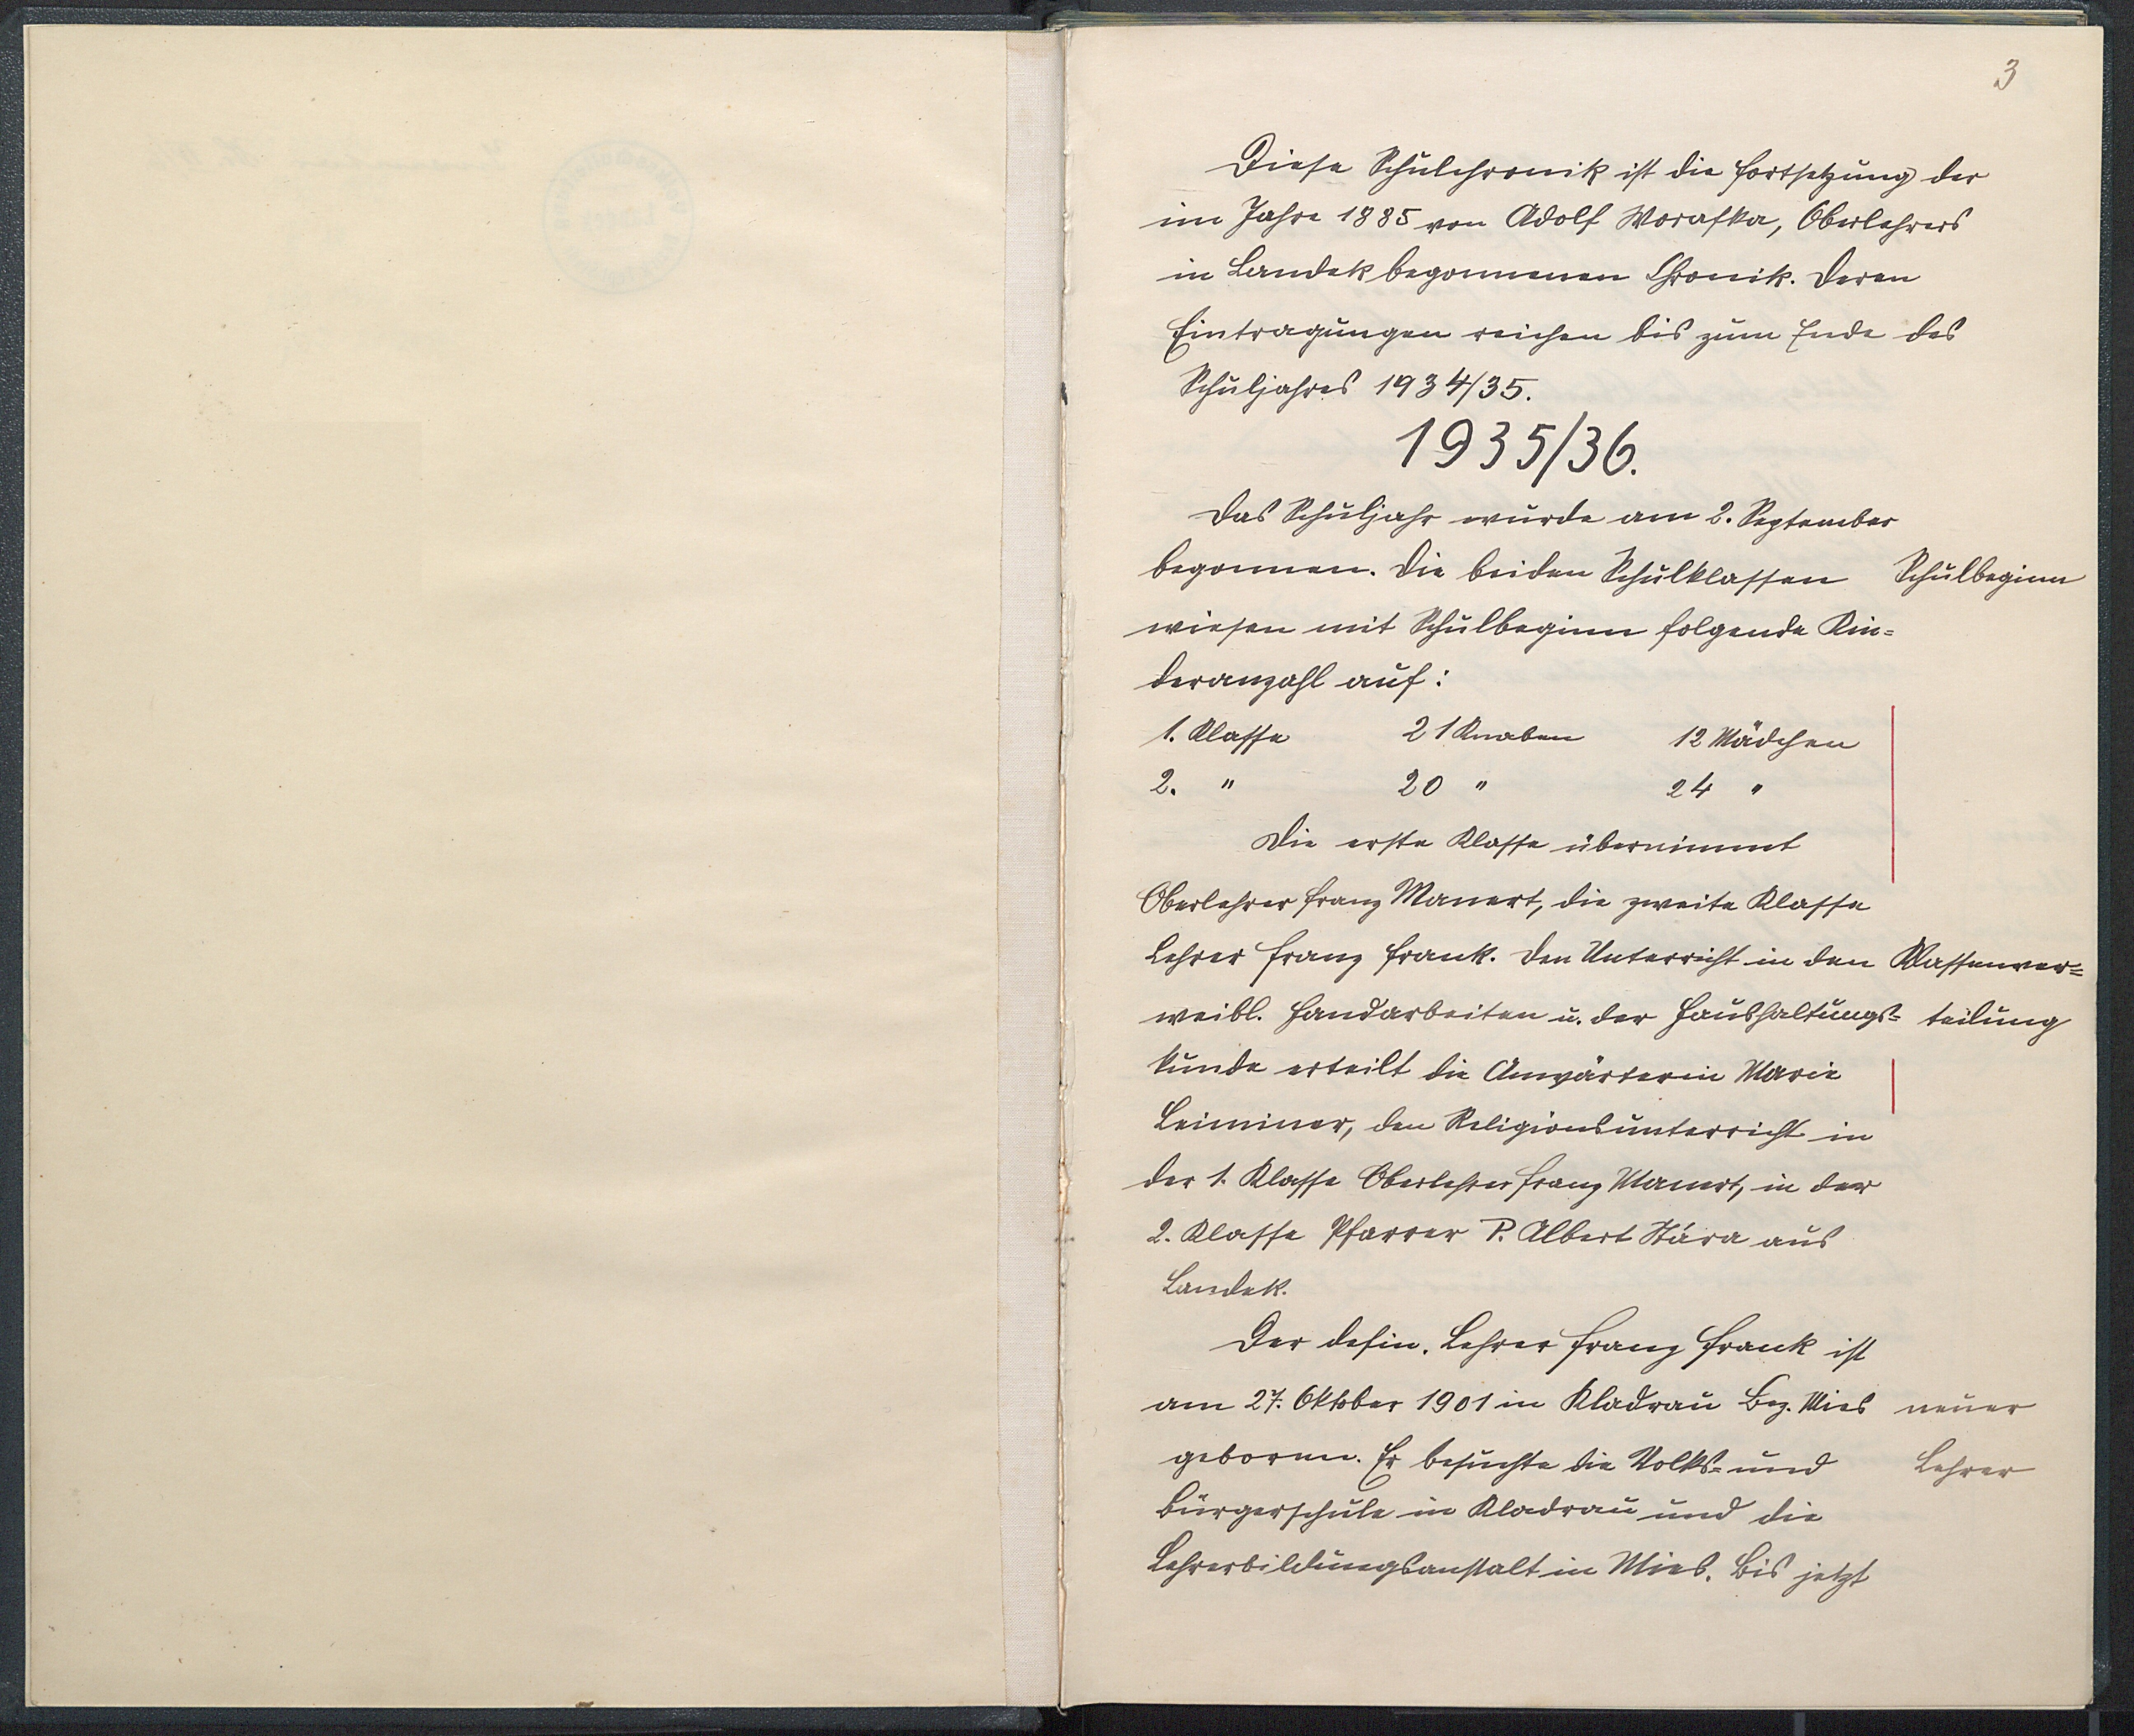 3
Diese Schulchronik ist die Fortsetzung der
im Jahre 1885 von Adolf Worafka, Oberlehrers
in Landek begonnenen Chronik. Deren
Eintragungen reichen bis zum Ende des
Schuljahres 1934/35.
1935/36.
Das Schuljahr wurde am 2. September
begonnen. Die beiden Schulklassen Schulbeginn
wiesen mit Schulbeginn folgende Kin=
deranzahl auf:
1. Klasse 21 Knaben 12 Mädchen
2. " 20 " 24 "
Die erste Klasse übernimmt
Oberlehrer Franz Manert, die zweite Klasse
Lehrer Franz Frank. Den Unterricht in den Klassenver=
weibl. Handarbeiten u. der Haushaltungs= teilung
kunde erteilt die Anwärterin Marie
Leiminer, den Religionsunterricht in
der 1. Klasse Oberlehrer Franz Manert, in der
2. Klasse Pfarrer P. Albert Stára aus
Landek.
Der defin. Lehrer Franz Frank ist
am 27. Oktober 1901 in Kladrau Bez. Mies neuer
geboren. Er besuchte die Volks= und Lehrer
Bürgerschule in Kladrau und die
Lehrerbildungsanstalt in Mies. Bis jetzt